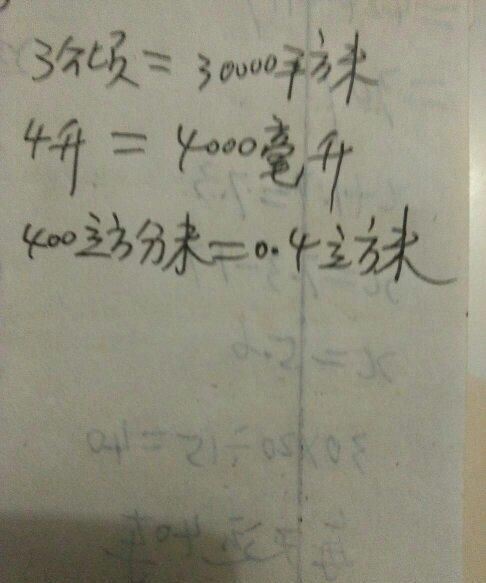 3公顷 = 30000平方米
4升 = 4000毫升
400立方分米=0.4立方米